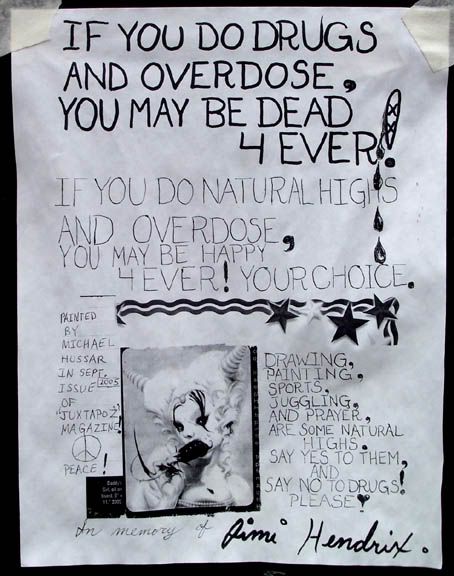 IF YOU DO DRUGS
AND OVERDOSE,
YOU MAY BE DEAD
4 EVER!
IF YOU DO NATURAL HIGHS
AND OVERDOSE,
YOU MAY BE HAPPY
4 EVER! YOUR CHOICE.
PAINTED
BY
MICHAEL
HUSSAR
IN SEPT.
ISSUE 2005
OF
"JUXTAPOZ"
MAGAZINE!
PEACE!
DRAWING,
PAINTING,
SPORTS,
JUGGLING,
AND PRAYER,
ARE SOME NATURAL
HIGHS.
SAY YES TO THEM,
AND
SAY NO TO DRUGS!
PLEASE
In memory of Jimi Hendrix.